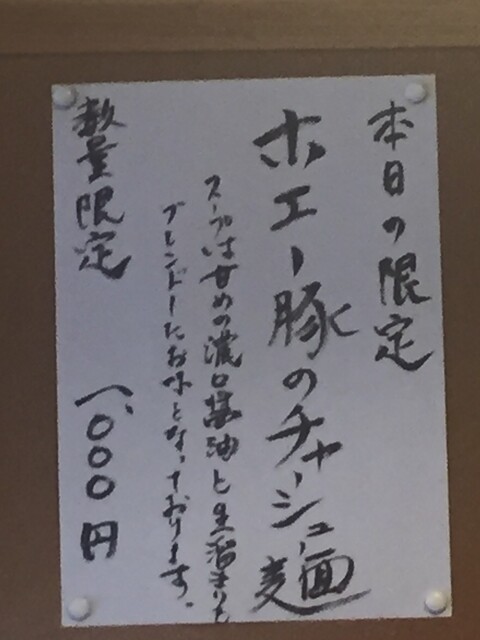 本日の限定
ホエー豚のチャーシュー麺
スープは甘めの濃口醤油と生溜まりを
ブレンドしたお味となっております。
数量限定 一、000円